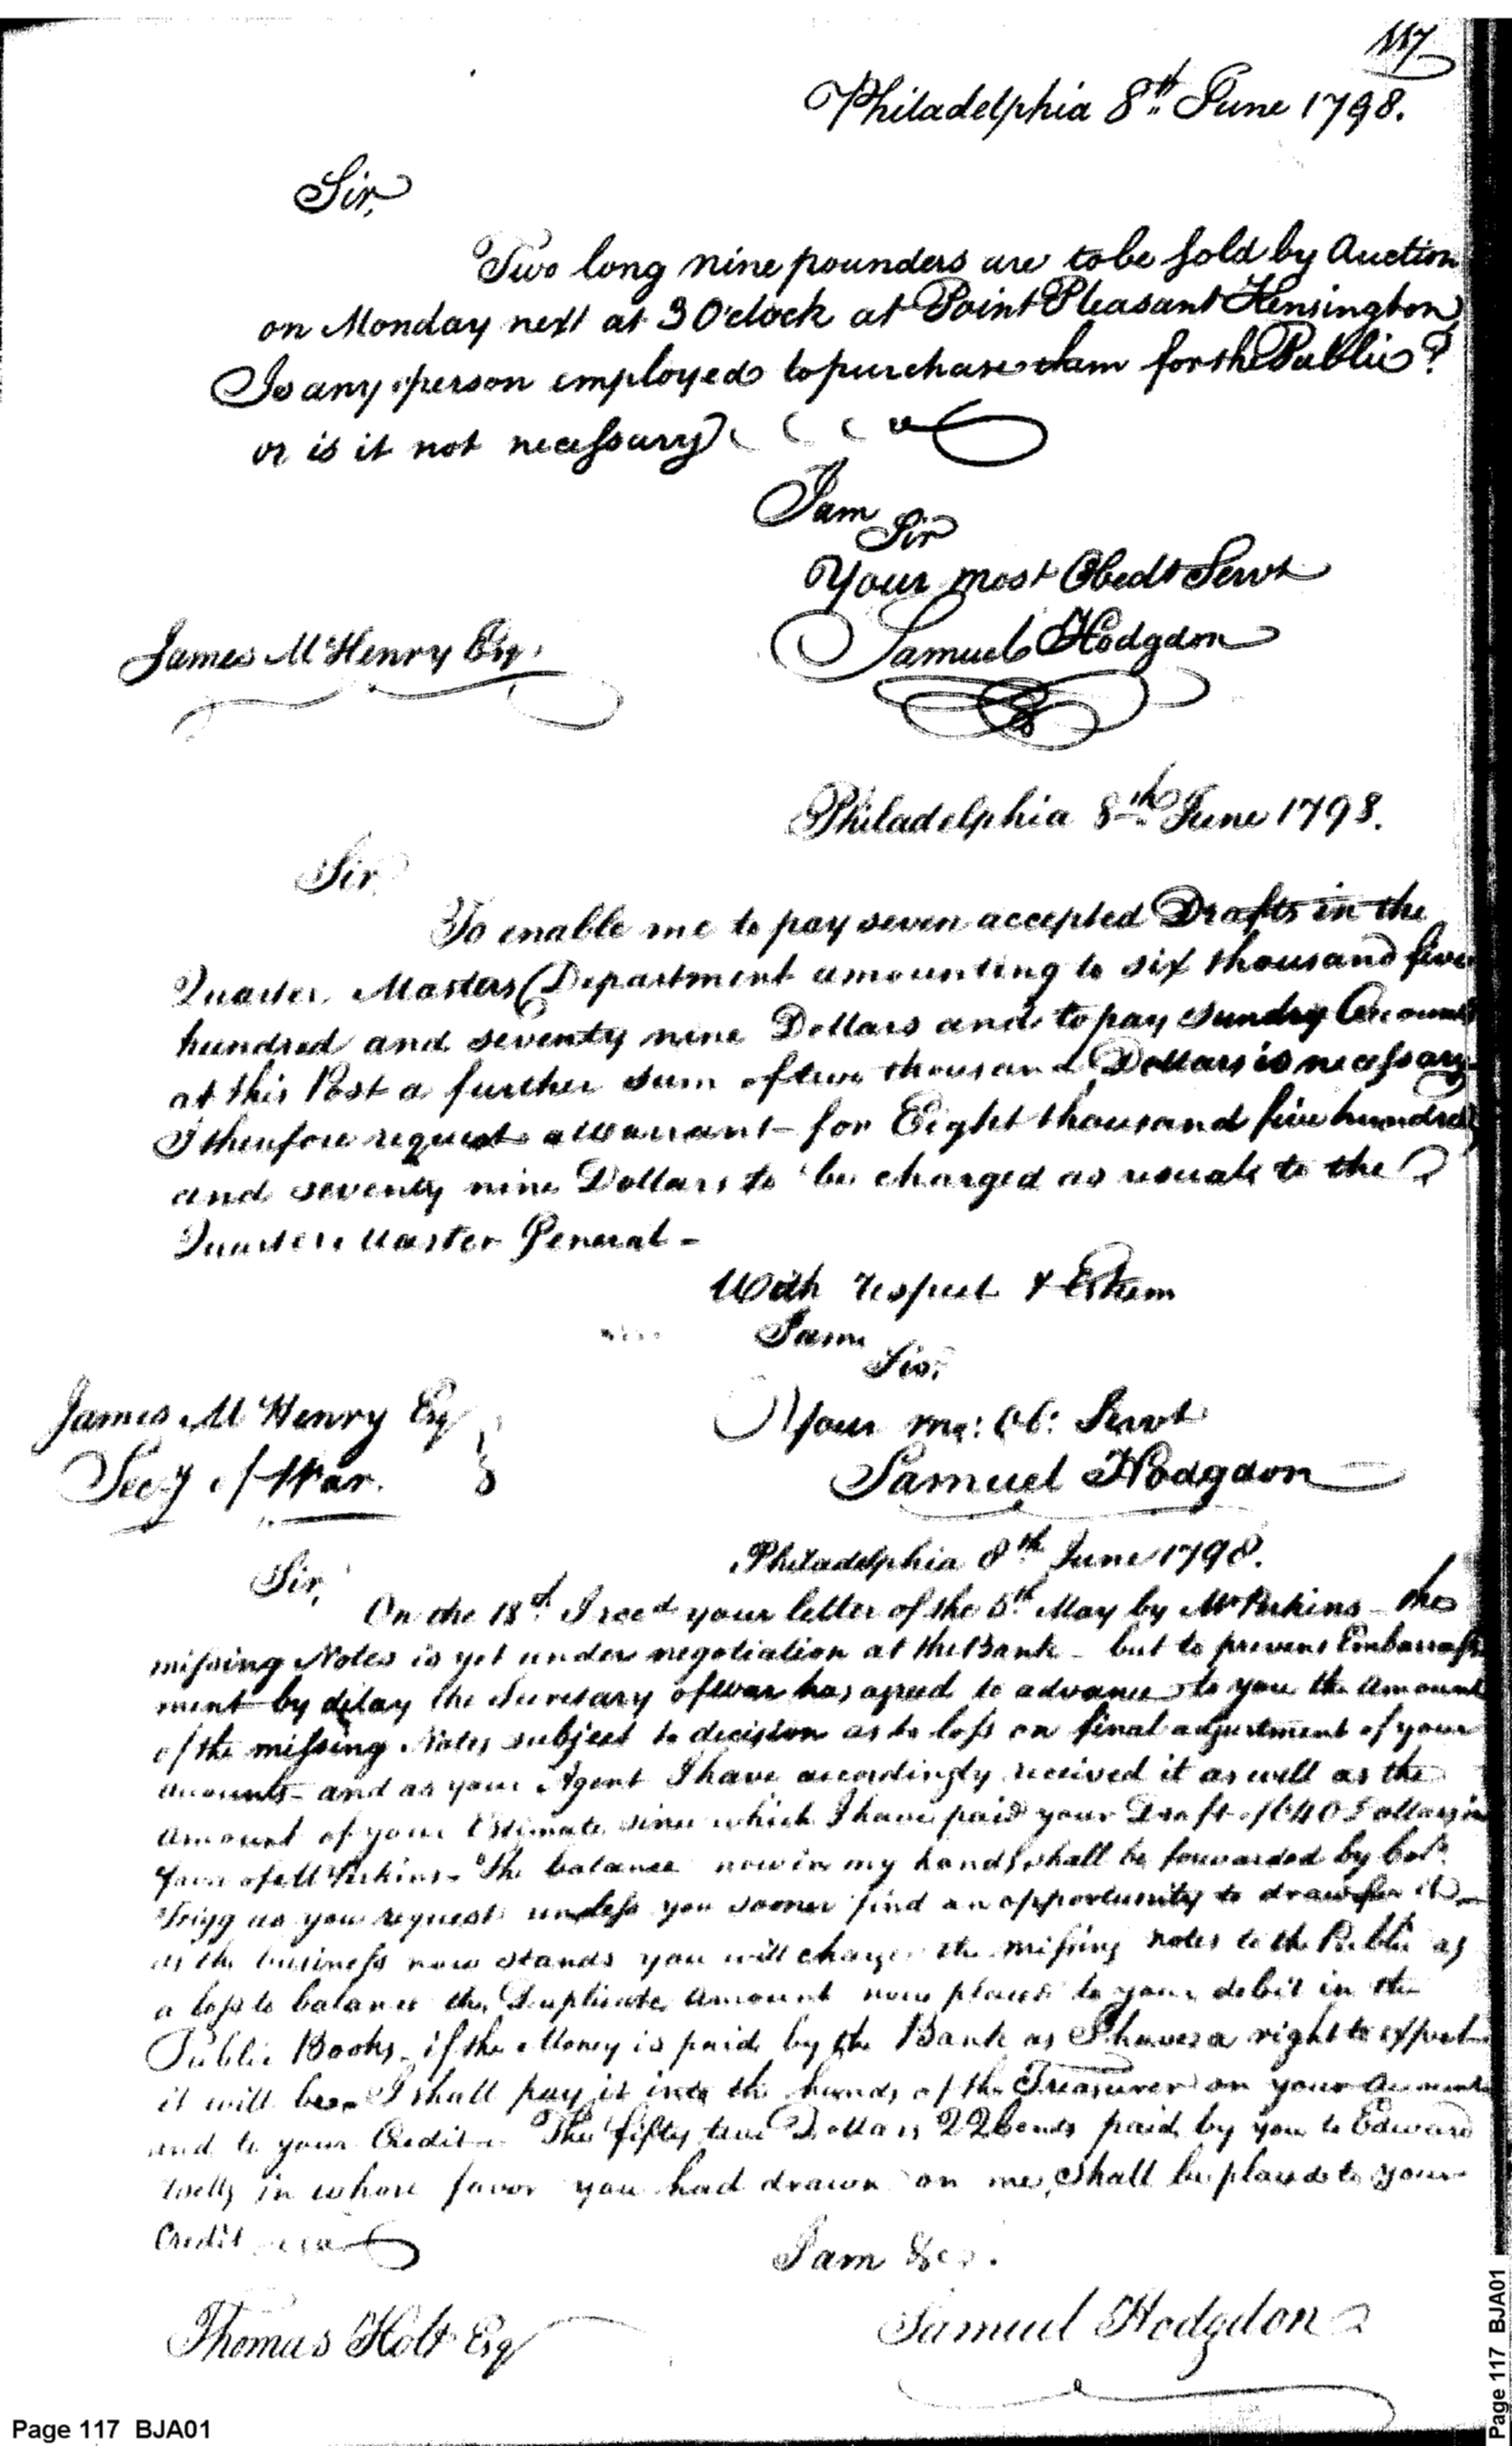 117
Philadelphia 8th June 1798.
Sir,
Two long nine pounders are to be sold by Auction
on Monday next at 3 O'clock at Point Pleasant Kensington
Is any person employed to purchase them for the Public?
or is it not necessary
I am
Sir
Your most Obedt Servt
Samuel Hodgdon
James McHenry Esq.
Philadelphia 8th June 1798.
Sir
To enable me to pay seven accepted Drafts in the
Quarter Masters Department amounting to six thousand five
hundred and seventy nine Dollars and to pay sundry Accounts
at this Post a further sum of two thousand Dollars is necessary
I therefore request a Warrant for Eight thousand five hundred
and seventy nine Dollars to be charged as usual to the
Quarter Master General -
With respect & Esteem
I am
Sir,
Your mo: Ob: Servt
Samuel Hodgdon
James McHenry Esq
Secy of War.
Philadelphia 8th June 1798.
Sir,
On the 18th I recd your letter of the 5th May by Mr Perkins - the
missing Notes is yet under negotiation at the Bank - but to prevent Embarrass
ment by delay the Secretary of war has agreed to advance to you the amount
of the missing Notes subject to decision as to loss on final adjustment of your
accounts - and as your Agent I have accordingly received it as well as the
amount of your Estimate since which I have paid your Draft of 640 Dollars in
favor of Mr Perkins - The balance now in my hands shall be forwarded by
Trigg as you request unless you sooner find an opportunity to draw for it -
as the business now stands you will charge the missing notes to the Public as
a loss to balance the Duplicate amount now placed to your debit in the
Public Books - if the Money is paid by the Bank as I have a right to expect
it will be - I shall pay it into the hands of the Treasurer on your account
and to your Credit - The fifty two Dollars 22 Cents paid by you to Edward
in whose favor you had drawn on me, shall be placed to your
Credit
I am &c.
Samuel Hodgdon
Thomas Holt Esq
Page 117 BJA01
Page 117 BJA01